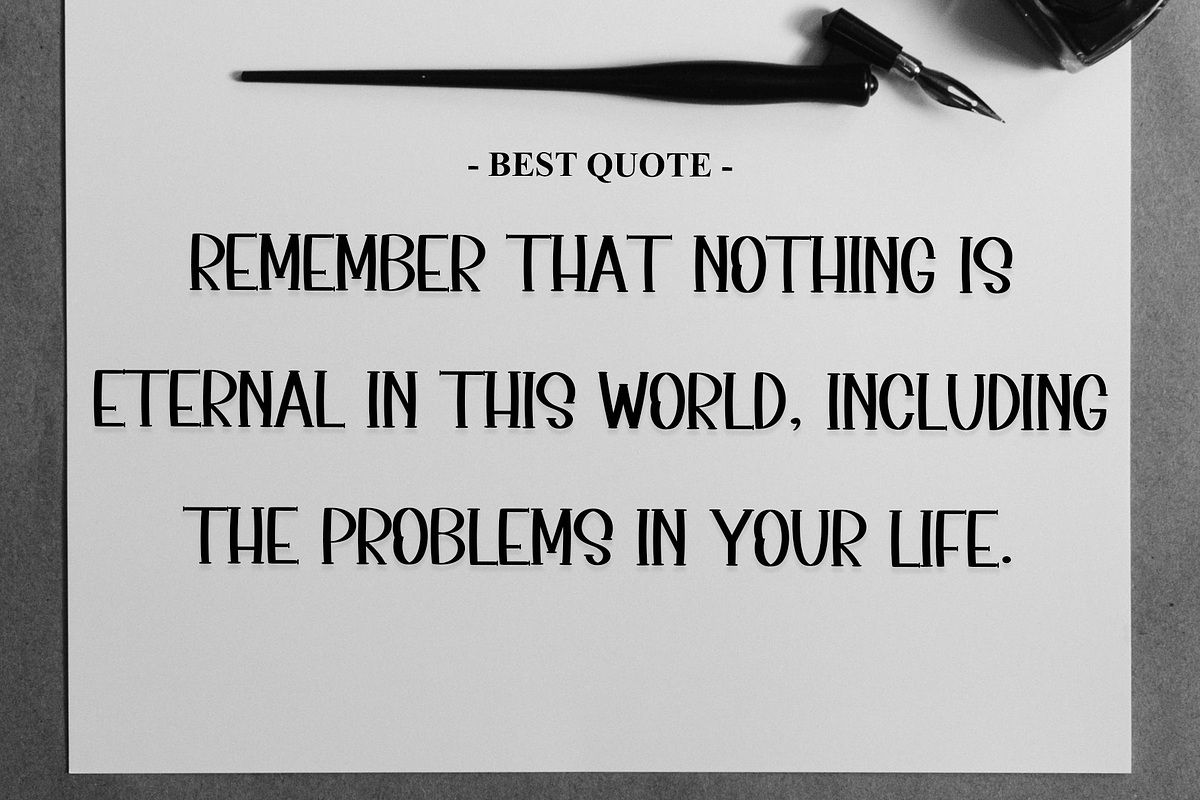 - BEST QUOTE -
REMEMBER THAT NOTHING IS
ETERNAL IN THIS WORLD, INCLUDING
THE PROBLEMS IN YOUR LIFE.